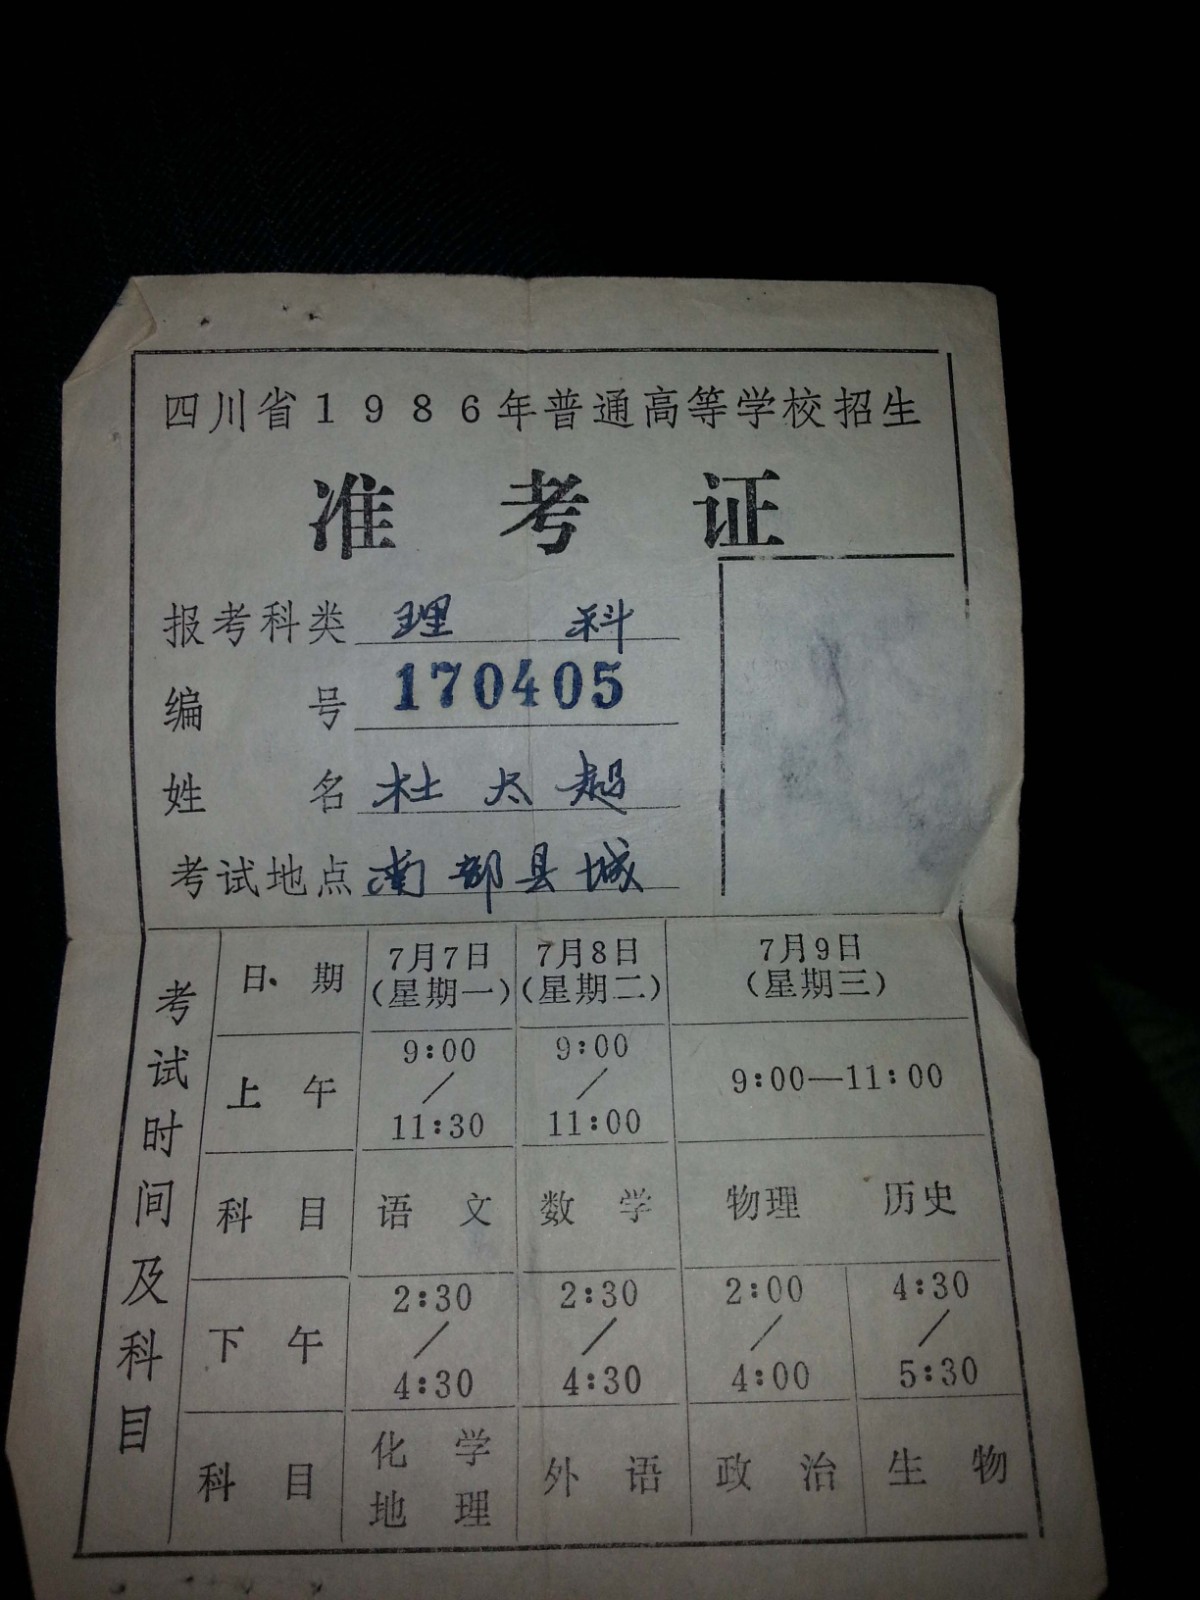 四川省1986年普通高等学校招生
准考证
报考科类 理科
编号 170405
姓名 杜太超
考试地点 南部县城
考试时间及科目
日期 7月7日（星期一） 7月8日（星期二） 7月9日（星期三）
上午 9:00/11:30 9:00/11:00 9:00—11:00
科目 语文 数学 物理 历史
下午 2:30/4:30 2:30/4:30 2:00/4:00 4:30/5:30
科目 化学 地理 外语 政治 生物